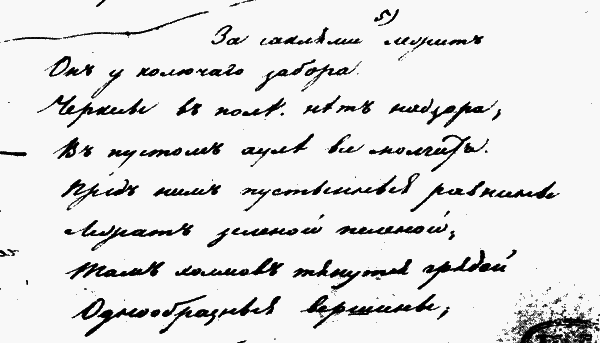 5)
За саклями лежитъ
Онъ у колючаго забора.
Черкесы въ полѣ. нѣтъ надзора,
Въ пустомъ аулѣ все молчитъ.
Предъ нимъ пустынныя равнины
Лежатъ зеленой пеленой;
Тамъ холмовъ тянутся грядой
Однообразныя вершины;